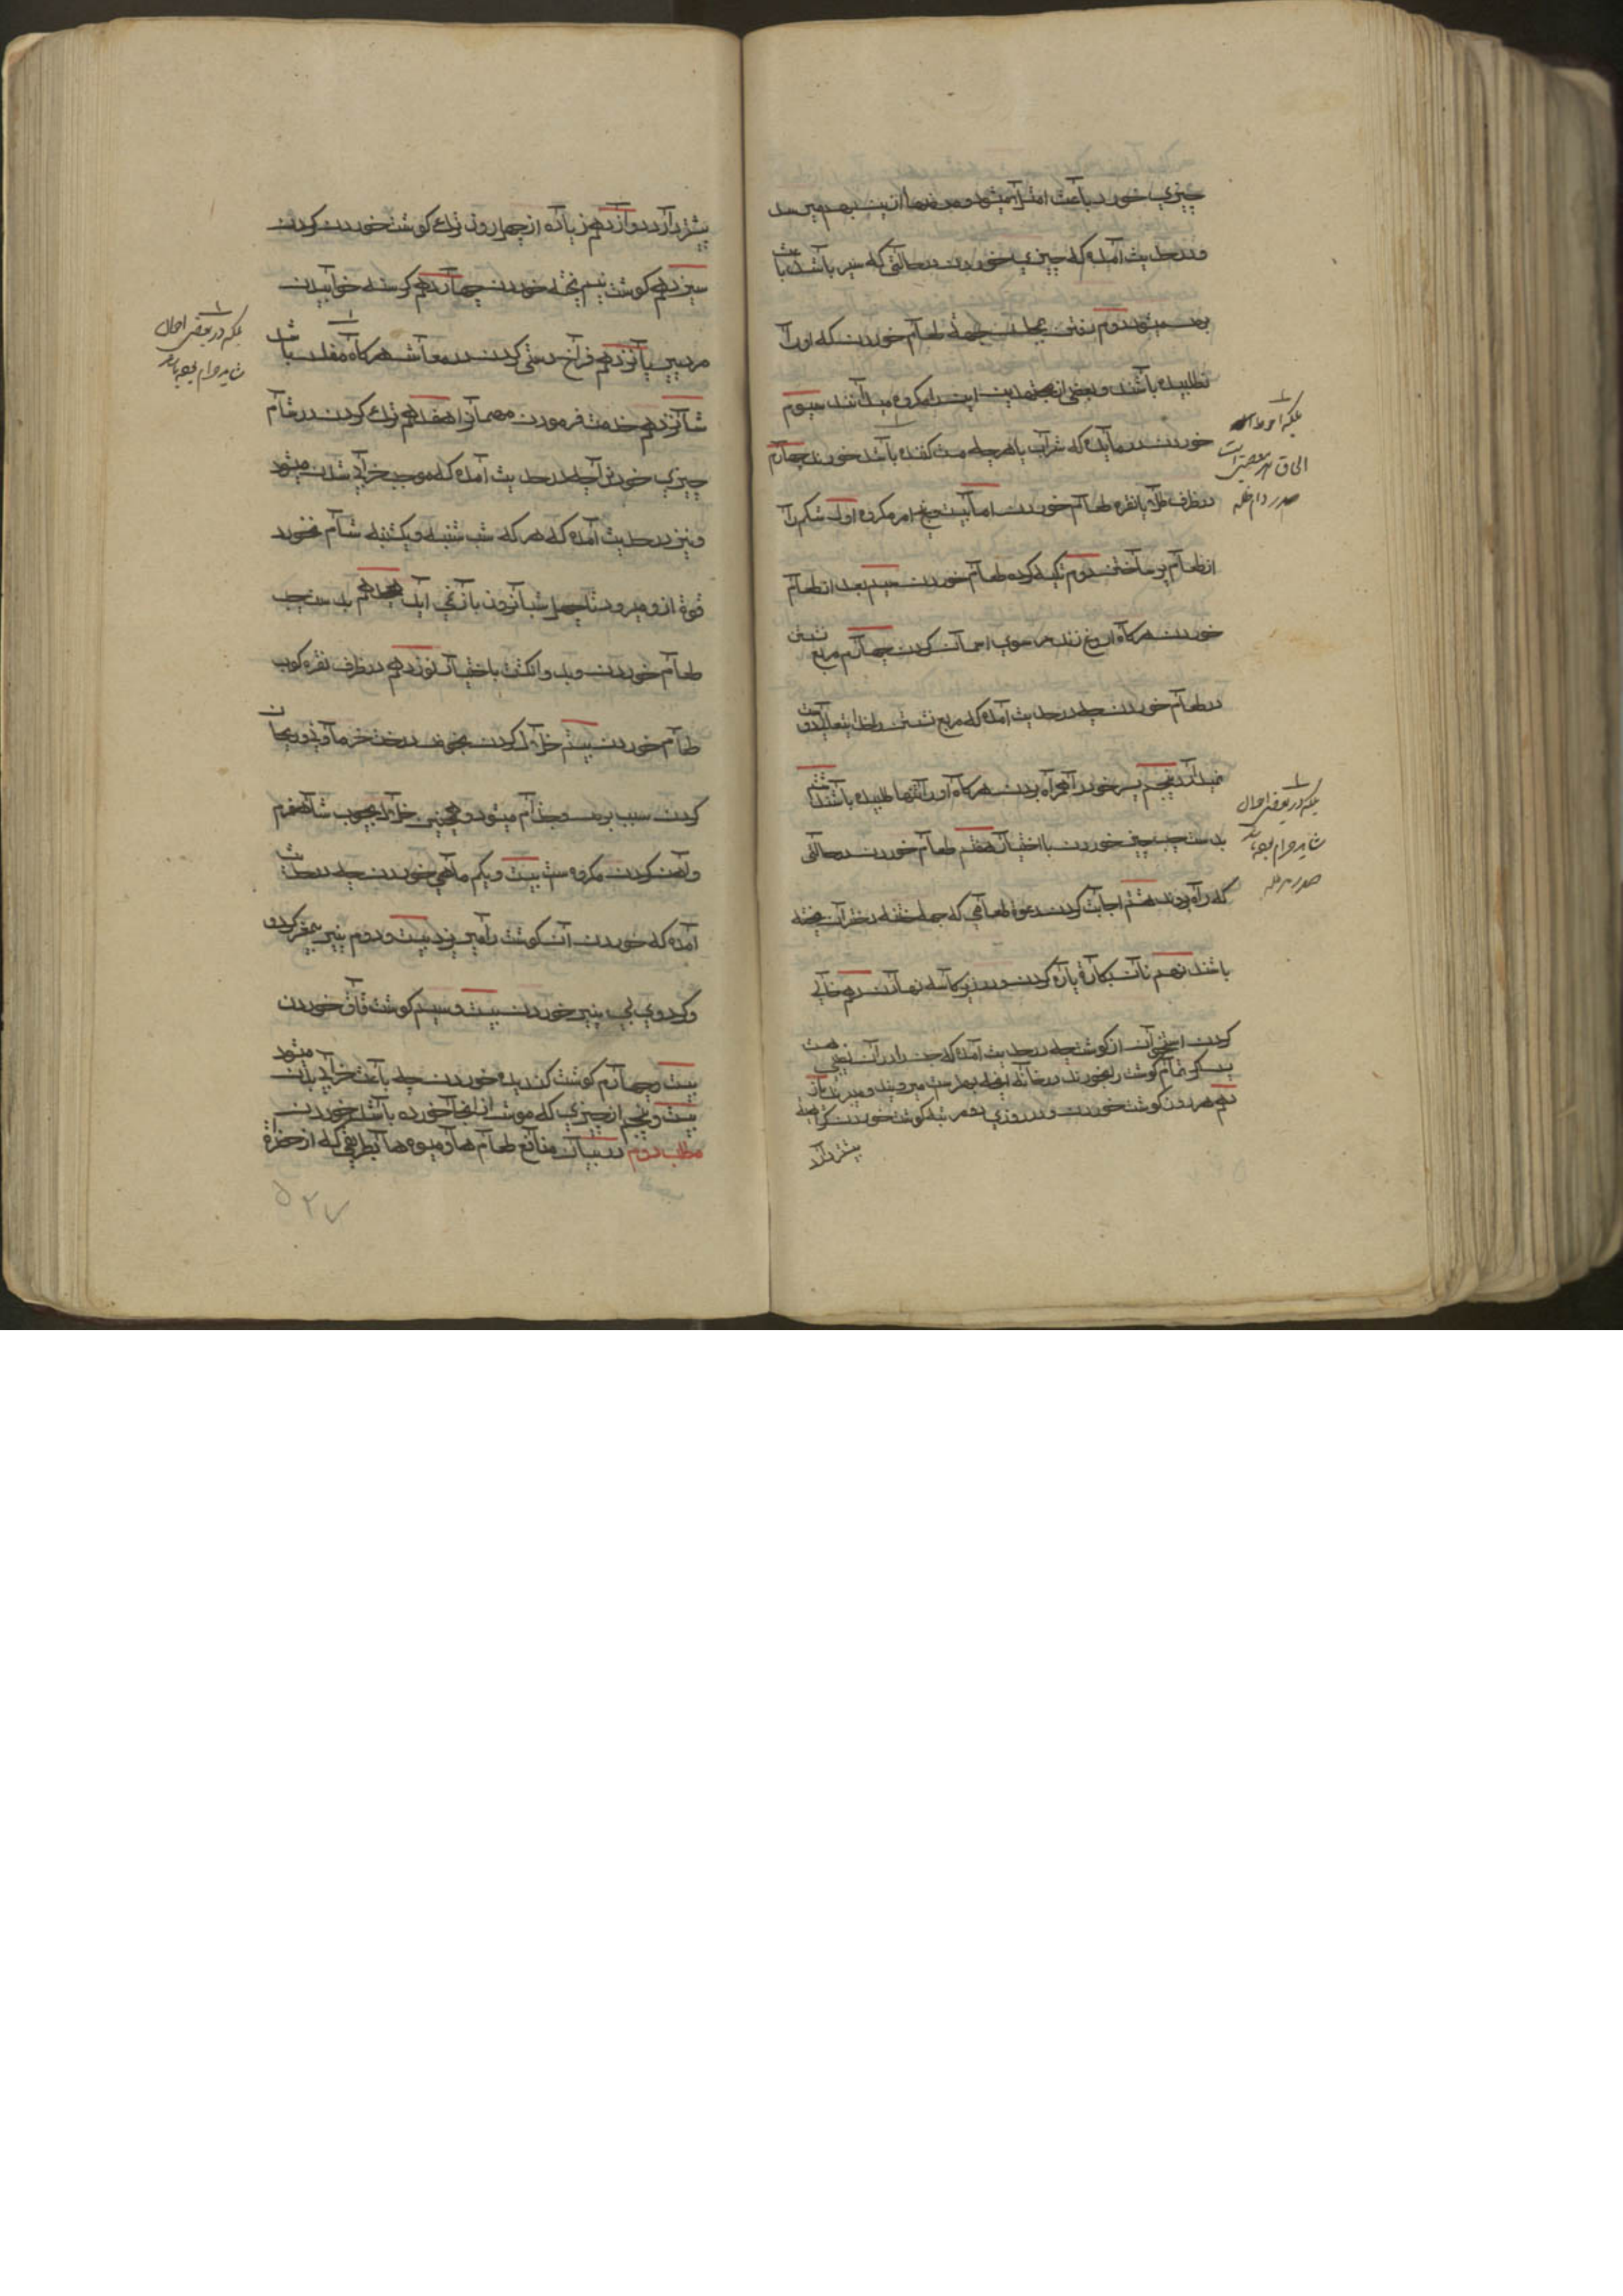 چیزی خورد باعث امتلا میشود و مرضها ازین بهم میرسد
و در حدیث آمده که چیزی خوردن در حالتی که سیر باشد باعث
برص میشود دوم رفتن بجائی بجهة طعام خوردن که او را
نطلبیده باشند و بعضی از مجتهدین این را مکروه میدانند سیوم
خوردن در مایده که شراب یا هرچه مست کننده باشد خورند چهارم
در ظرف طلا یا نقره طعام خوردن اما بیست و پنج امر مکروه اول شکم را
از طعام پر ساختن دوم تکیه کرده طعام خوردن سیم بعد از طعام
خوردن هرگاه اروغ زند سر سوی اسمان کردن چهارم مربع نشستن
در طعام خوردن چه در حدیث آمده که مربع نشستن را خدایتعالی دوست
نمیدارد پنجم پسر خود را همراه بردن هرگاه او را تنها طلبیده باشند ششم
بدست چپ چیزی خوردن با اختیار هفتم طعام خوردن در حالتی
که راه روند هشتم اجابت کردن دعوة طعامی که جهة ختنه دختران پخته
باشند نهم نان بکارد پاره کردن و در زیر کاسه نهادن دهم خالی
کردن استخوان از گوشت چه در حدیث آمده که جن را در آن نصیبی هست
پس اگر تمام گوشت را بخورند در خانه آنچه بهتر است میروند و میبرند یاز
دهم هر روز گوشت خوردن و در روزی دو مرتبه گوشت خوردن کراهیة
بیشتر دارد
بلکه در بعض احوال
شاید حرام بوده باشد
صدر مد ظله
بیشتر دارد دوازدهم زیاده از چهل روز ترک گوشت خوردن کردن
سیزدهم گوشت نیم پخته خوردن چهاردهم گرسنه خوابیدن
مردمی پانزدهم فراخ دستی کردن در معاش هرگاه مفلس باشد
شانزدهم خدمت فرمودن مهمان را هفدهم ترک کردن در شام
چیزی خوردن چه در حدیث آمده که موجب خرابی بدن میشود
و نیز در حدیث آمده که هر که شب شنبه و یکشنبه شام نخورد
قوة از و میرود تا چهل شبانروز باز نمی آید هجدهم بدست چپ
طعام خوردن و بدو انگشت باختیار نوزدهم در ظرف نقره کوب
طعام خوردن بیستم خلال کردن بچوب درخت خرما و نی و ریحان
کردن سبب برص و جذام میشود و همچنین خلال بچوب شاهسفرم
و آهن کردن مکروه ست بیست و یکم ماهی خوردن چه در حدیث
آمده که خوردن آن گوشت را میریزد بیست و دوم پنیر بیمغز گردو
و گردوی بی پنیر خوردن بیست و سیم گوشت قاق خوردن
بیست و چهارم گوشت گندیده خوردن چه باعث خرابی بدن میشود
بیست و پنجم از چیزی که موش از انجا خورده باشد خوردن
مطلب دوم در بیان منافع طعام ها و میوه ها بطریقی که از حضرة
بلکه در بعض احوال
شاید حرام بوده باشد
۵۲۷